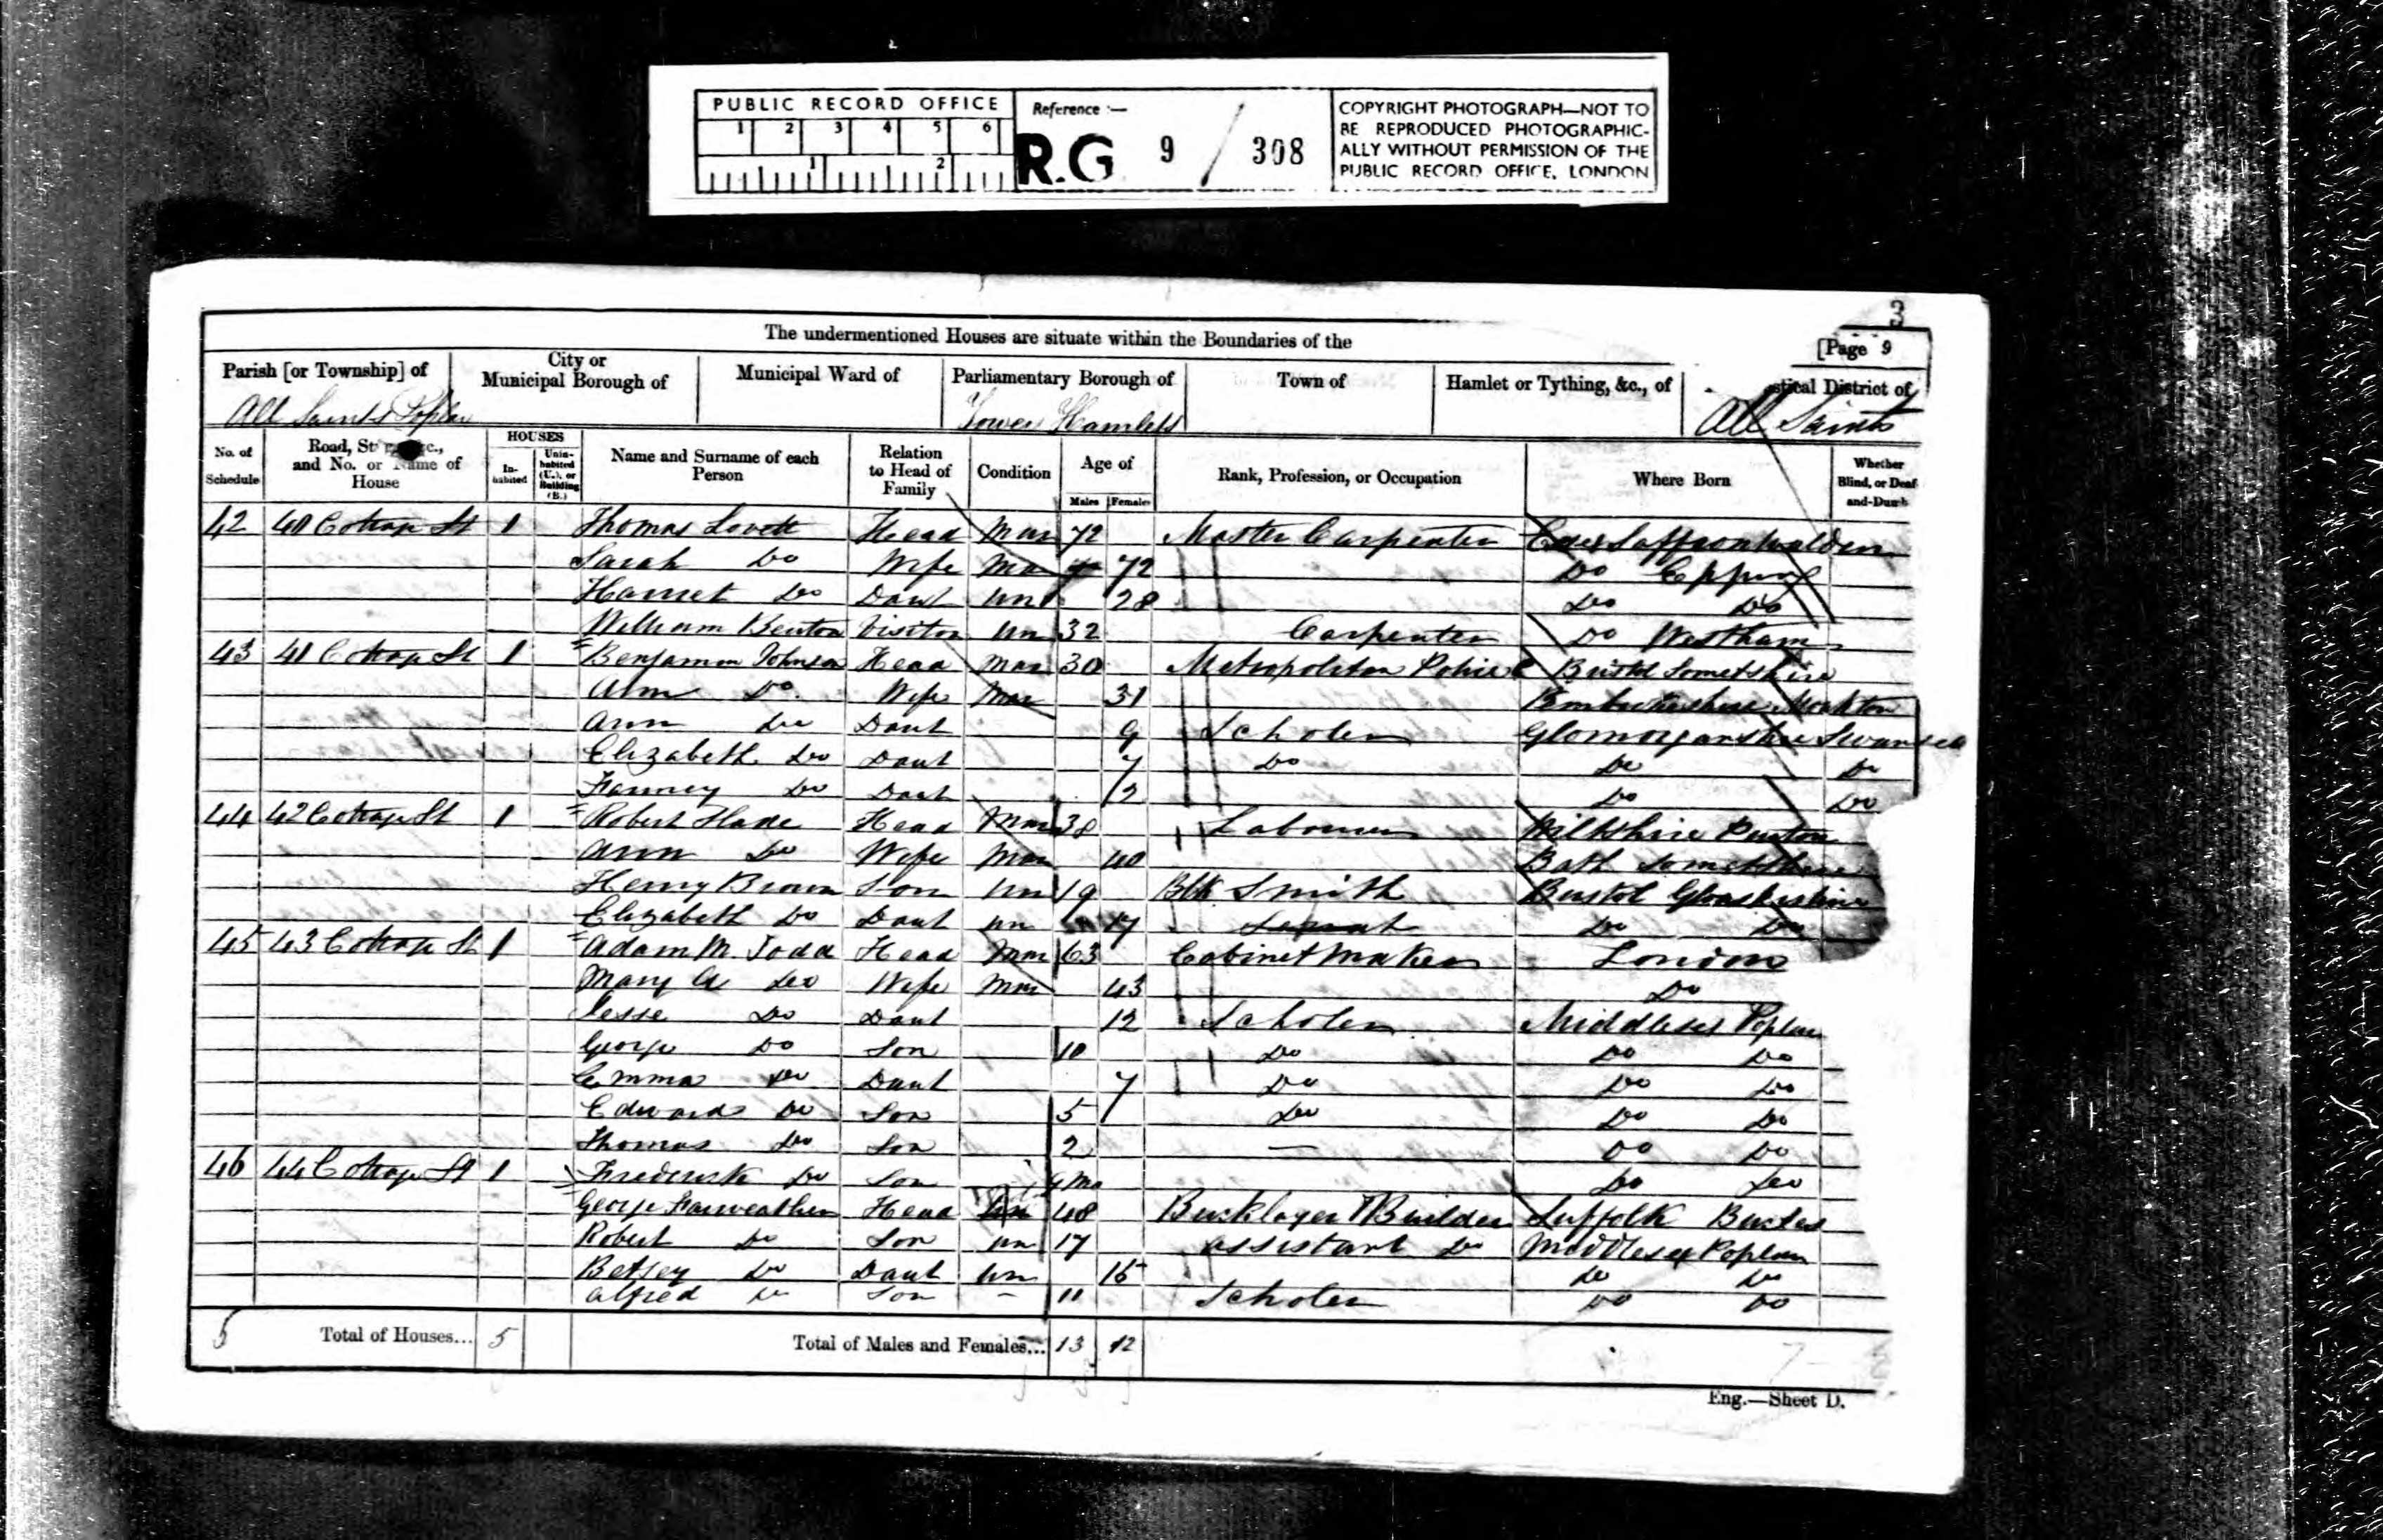 PUBLIC RECORD OFFICE
1 2 3 4 5 6
1 2
Reference :—
R.G 9 / 308
COPYRIGHT PHOTOGRAPH—NOT TO
BE REPRODUCED PHOTOGRAPHIC-
ALLY WITHOUT PERMISSION OF THE
PUBLIC RECORD OFFICE, LONDON
3
The undermentioned Houses are situate within the Boundaries of the
[Page 9
Parish [or Township] of
City or Municipal Borough of
Municipal Ward of
Parliamentary Borough of
Town of
Hamlet or Tything, &c., of
stical District of
All Saints Poplar Tower Hamlets All Saints
No. of Schedule
Road, St c., and No. or Name of House
HOUSES
In-habited
Unin-habited (U.), or Building (B.)
Name and Surname of each Person
Relation to Head of Family
Condition
Age of
Males Females
Rank, Profession, or Occupation
Where Born
Whether Blind, or Deaf-and-Dumb
42 40 Cottage St 1 Thomas Lovett Head Mar 72 Master Carpenter Essex Saffronwalden
Sarah Do Wife Mar 72 Do Epping
Harriet Do Daut Un 28 Do Do
William Benton Visitor Un 32 Carpenter Do Westham
43 41 Cottage St 1 Benjamin Johnson Head Mar 30 Metropolitan Police Bristol Sometshire
Ann Do Wife Mar 31 Pembrokeshire Monkton
Ann Do Daut 9 Scholar Glamorganshire Swansea
Elizabeth Do Daut 7 Do Do Do
Fanney Do Daut 2 Do Do
44 42 Cottage St 1 Robert Slade Head Mar 38 Labourer Wiltshire Purton
Ann Do Wife Mar 40 Bath Somersthire
Henry Brown Son Un 19 Blk Smith Bristol
Elizabeth Do Daut Un 17 Do Do
45 43 Cottage St 1 Adam M. Todd Head Mar 63 Cabinet Maker London
Mary A Do Wife Mar 43 Do
Jesse Do Daut 12 Scholar Middlesex Poplar
George Do Son 10 Do Do Do
Emma Do Daut 7 Do Do Do
Edward Do Son 5 Do Do Do
Thomas Do Son 2 — Do Do
46 44 Cottage St 1 Frederick Do Son 9 Mo Do Do
George Fairweather Head 48 Bricklayer Builder Suffolk
Robert Do Son Un 17 Assistant Do Middlesex Poplar
Betsey Do Daut Un 15 Do Do
Alfred Do Son - 11 Scholar Do Do
5 Total of Houses... 5 Total of Males and Females... 13 12
Eng.—Sheet D.